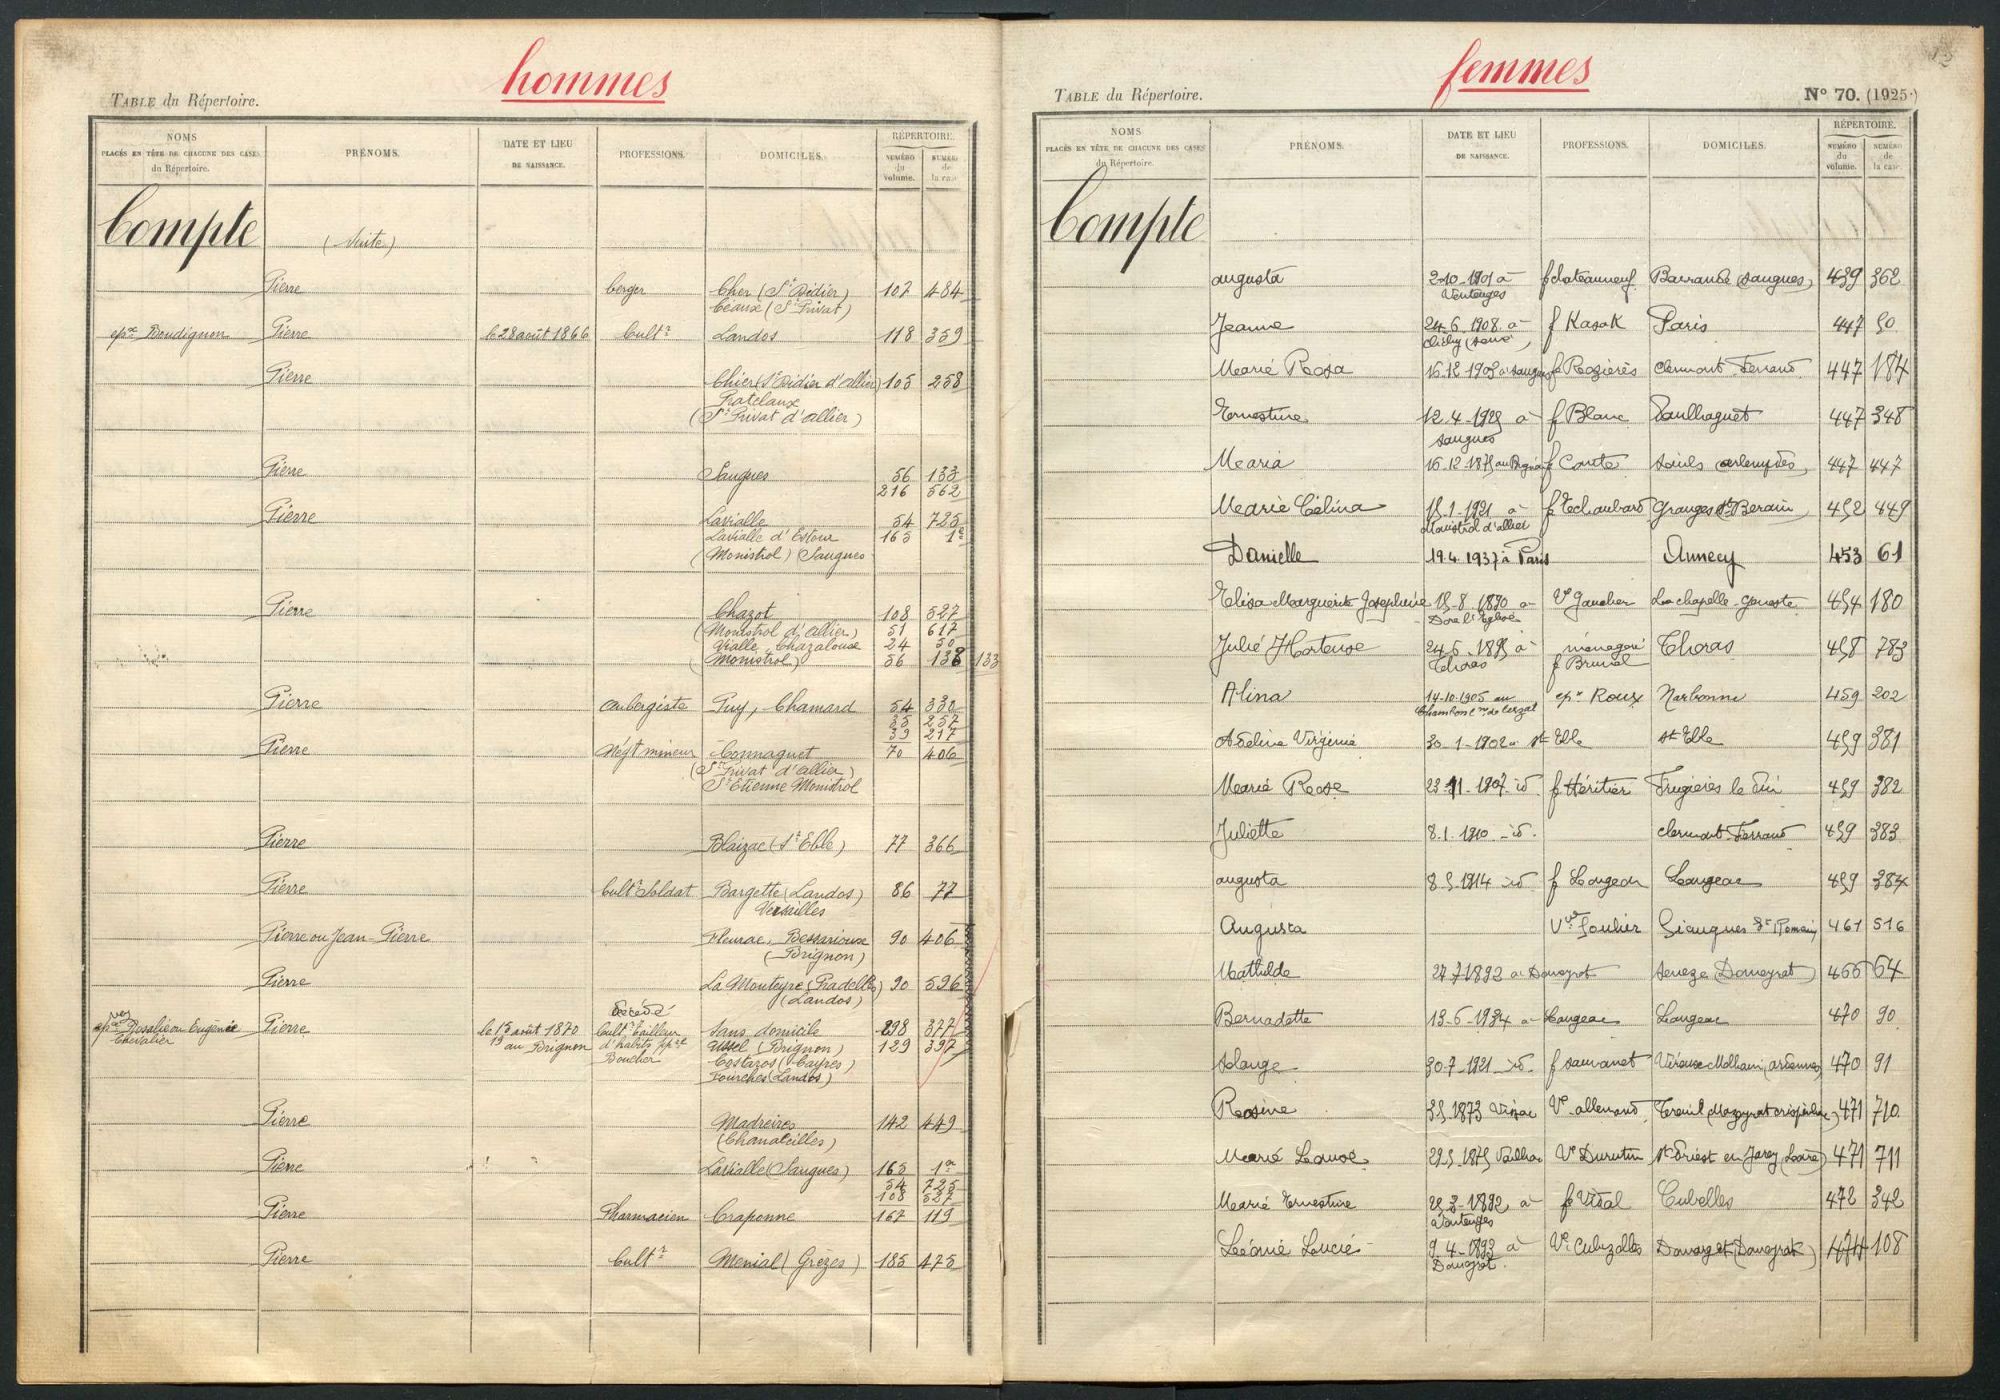 hommes
TABLE du Répertoire.
NOMS PLACÉS EN TÊTE DE CHACUNE DES CASES du Répertoire. PRÉNOMS. DATE ET LIEU DE NAISSANCE. PROFESSIONS. DOMICILES. RÉPERTOIRE. NUMÉRO du volume. NUMÉRO de la case.
Compte (suite)
Pierre berger Cher (St Didier) 107 484
Ceaux (St Privat)
epx Boudignon Pierre le 28 août 1866 Cultr Landos 118 359
Pierre Chier (St Didier d'allier) 105 258
Pratclaux
(St Privat d'allier)
Pierre Saugues 56 133
216 562
Pierre Lavialle 54 725
Lavialle d'Estour 163 1e
(Monistrol) Saugues
Pierre Chazot 108 527
(Monistrol d'allier) 51 617
Vialle Chazalouse 24 50
(Monistrol) 56 138 133
Pierre aubergiste Puy, Chamard 54 330
35 257
39 217
Pierre Négt mineur Connaquet 70 406
(St Privat d'allier)
St Etienne Monistrol
Pierre Blaizac (St Eble) 77 366
Pierre Cultr Soldat Bargette (Landos) 86 77
Versailles
Pierre ou Jean-Pierre Fleurac, Bessarioux 90 406
(Brignon)
Pierre La Monteyre (Pradelles) 90 596
(Landos)
décédé
epx Rosalie ou Eugénie Pierre le 15 août 1870 Cultr tailleur Sans domicile 298 377
Chevalier 19 au Brignon d'habits Ussel (Brignon) 129 397
Boucher Costaros (Cayres)
Fourches (Landos)
Pierre Madreires 142 449
(Chanaleilles)
Pierre Lavialle (Saugues) 163 1er
54 725
108 527
Pierre Pharmacien Craponne 167 119
Pierre Cultr Menial (Grèzes) 185 475
femmes
TABLE du Répertoire. N° 70. (1925.)
NOMS PLACÉS EN TÊTE DE CHACUNE DES CASES du Répertoire. PRÉNOMS. DATE ET LIEU DE NAISSANCE. PROFESSIONS. DOMICILES. RÉPERTOIRE. NUMÉRO du volume. NUMÉRO de la case.
Compte
augusta 2-10-1901 à f chateauneuf Barrande (saugues) 439 362
Ventenges
Jeanne 24-6-1908 à f Kasak Paris 447 50
clichy (seine)
Marie Rosa 15.12 1905 à saugues f Rozières clermont-Ferrand 447 184
Ernestine 12-4-1925 à f Blanc Paulhaguet 447 348
saugues
Maria f Conte arlempdes 447 447
Marie Célina 15-1-1921 à f Techaubard Granges St Berain 452 449
Monistrol d'allier
Danielle 19.4 1937 à Paris Annecy 453 61
Elisa Marguerite Josephine à Ve Gaucher La chapelle-Geneste 454 180
Dore l'Eglise
Julie Hortense 24-6-1895 à ménagère Thoras 458 783
Thoras f Brunel
Alina 14-10-1905 au epse Roux Narbonne 459 202
Adeline Virginie 30-1-1902 à St Eble St Eble 459 381
Marie Rose 23-11-1907 id f Héritier Frugières le Pin 459 382
Juliette 8.1.1910 id. clermont Ferrand 459 383
augusta 8-5-1914 id f Langeac 459 384
Augusta Vve Foulier Siaugues St Romain 461 516
Mathilde 27-7-1892 à Domeyrat (Domeyrat) 466 64
Bernadette 13-6-1934 à Langeac Langeac 470 90
Solange 30-7-1921 id. f sauvanet Vireux-Molhain (ardennes) 470 91
Rosine Ve allemand 471 710
Marie Louise Ve Durutin St Priest en Jarez (Loire) 471 711
Marie Ernestine à f Vidal Cubelles 472 342
Ventenges
Léonie Lucie 9-4-1893 à Ve Cubizolles (Domeyrat) 474 108
Domeyrat